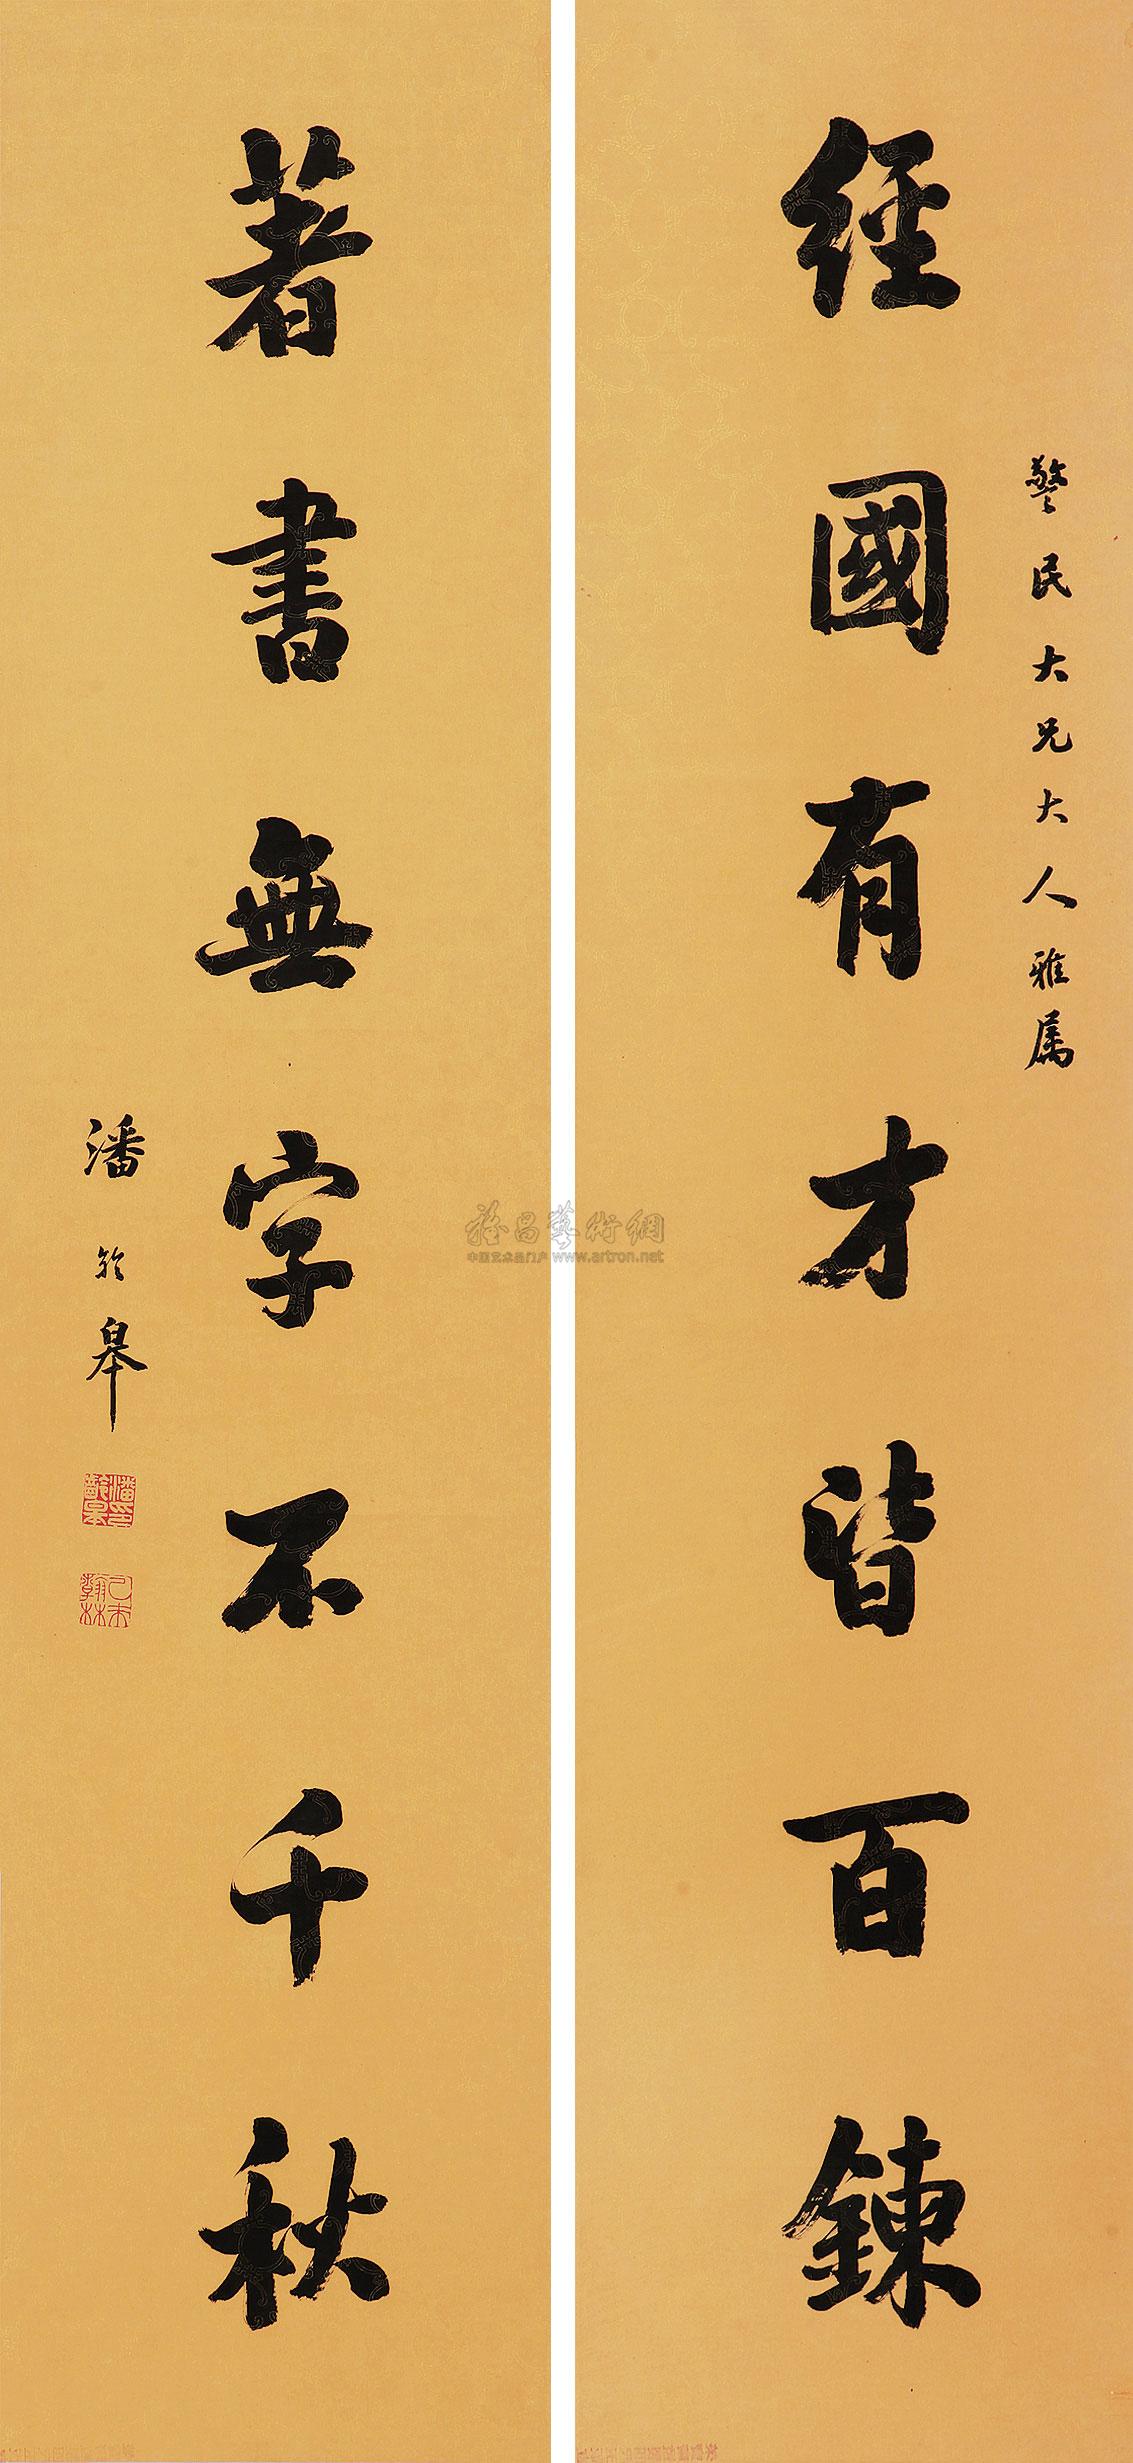 警民大兄大人雅属
經國有才皆百鍊
著書無字不千秋
潘龄皋
潘印齡皋
己未翰林
雅昌藝術網
中国艺术品门户 www.artron.net